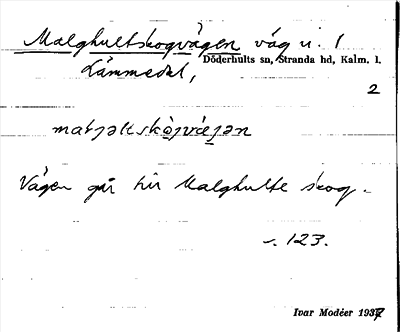 Malghultskogvägen väg u. 1
Lämmedal, Döderhults sn, Stranda hd, Kalm. l.
2
Vägen går till Malghults skog.
s. 123.
Ivar Modéer 1937